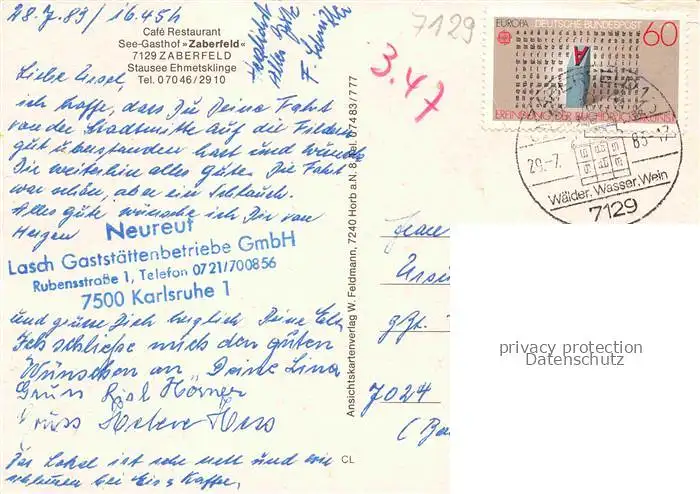 28.7.83 / 16.45h
Café Restaurant
See-Gasthof »Zaberfeld«
7129 ZABERFELD
Stausee Ehmetsklinge
Tel. 07046/2910
Herzlichst
alles Gute
F.
7129
3.47
EUROPA DEUTSCHE BUNDESPOST 60
ERFINDUNG DER BUCHDRUCKERKUNST
Wälder, Wasser, Wein
7129
Liebe Ursel,
ich hoffe, dass Du Deine Fahrt
von der Stadtmitte auf die Fildern
gut überstanden hast und wünsche
Dir weiterhin alles gute. Die Fahrt
war schön, aber ein Schlauch.
Alles gute wünsche ich Dir von
Herzen
Neureut
Lasch Gaststättenbetriebe GmbH
Rubensstraße 1, Telefon 0721/700856
7500 Karlsruhe 1
und grüsse Dich herzlich Deine
Ich schließe mich den guten
Wünschen an Deine Lina
Gruss
Gruss
Das Lokal ist sehr nett und wir
bei Eis & Kaffee,
Ansichtskartenverlag W. Feldmann, 7240 Horb a.N. 8, Tel. 07483/777
CL
Frau
7024
privacy protection
Datenschutz